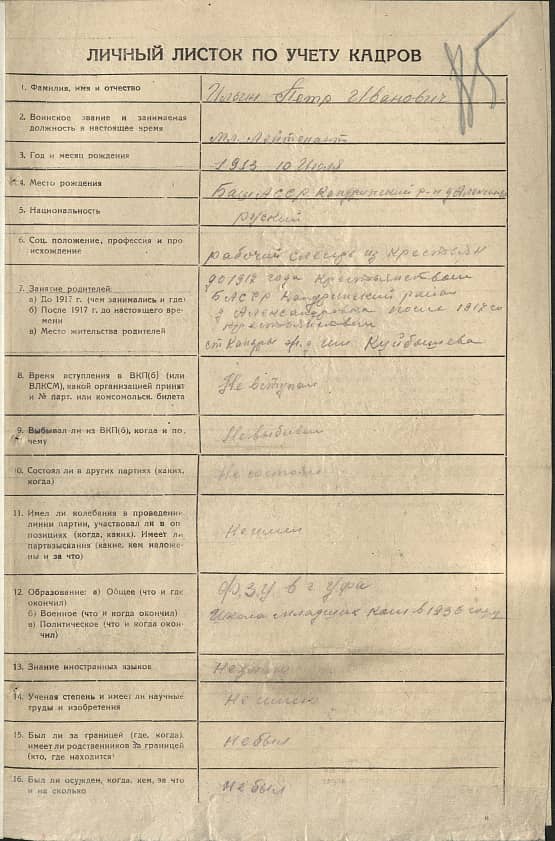 85
ЛИЧНЫЙ ЛИСТОК ПО УЧЕТУ КАДРОВ
1. Фамилия, имя и отчество
Петр Иванович
2. Воинское звание и занимаемая
должность в настоящее время
Мл. Лейтенант
3. Год и месяц рождения
1913 10 Июля
4. Место рождения
Баш АССР Кандринский р-н д
5. Национальность
руский
6. Соц. положение, профессия и про
исхождение
рабочий слесарь из крестьян
7. Занятие родителей:
а) До 1917 г. (чем занимались и где)
б) После 1917 г. до настоящего вре-
мени
в) Место жительства родителей
до 1917 года Крестьянством
БАССР Кандринский район
д Александровка после 1917 го
крестьянством
ст Кандры ж. д им. Куйбышева
8. Время вступления в ВКП(б) (или
ВЛКСМ), какой организацией принят
и № парт. или комсомольск. билета
Не вступал
9. Выбывал ли из ВКП(б), когда и по-
чему
Невыбивал
10. Состоял ли в других партиях (каких,
когда)
Не состоял
11. Имел ли колебания в проведении
линии партии, участвовал ли в оп
позициях (когда, каких). Имеет ли
партвзыскания (какие, кем наложе-
ны и за что)
Не имел
12. Образование: а) Общее (что и где
окончил)
б) Военное (что и когда окончил)
в) Политическое (что и когда окон-
чил)
Ф.З.У в г. Уфа
Школа младших ком в 1936 году
13. Знание иностранных языков
14. Ученая степень и имеет ли научные
труды и изобретения
Не имею
15. Был ли за границей (где, когда),
имеет ли родственников за границей
(кто, где находится)
Небыл
16. Был ли осужден, когда, кем, за что
и на сколько
Не был